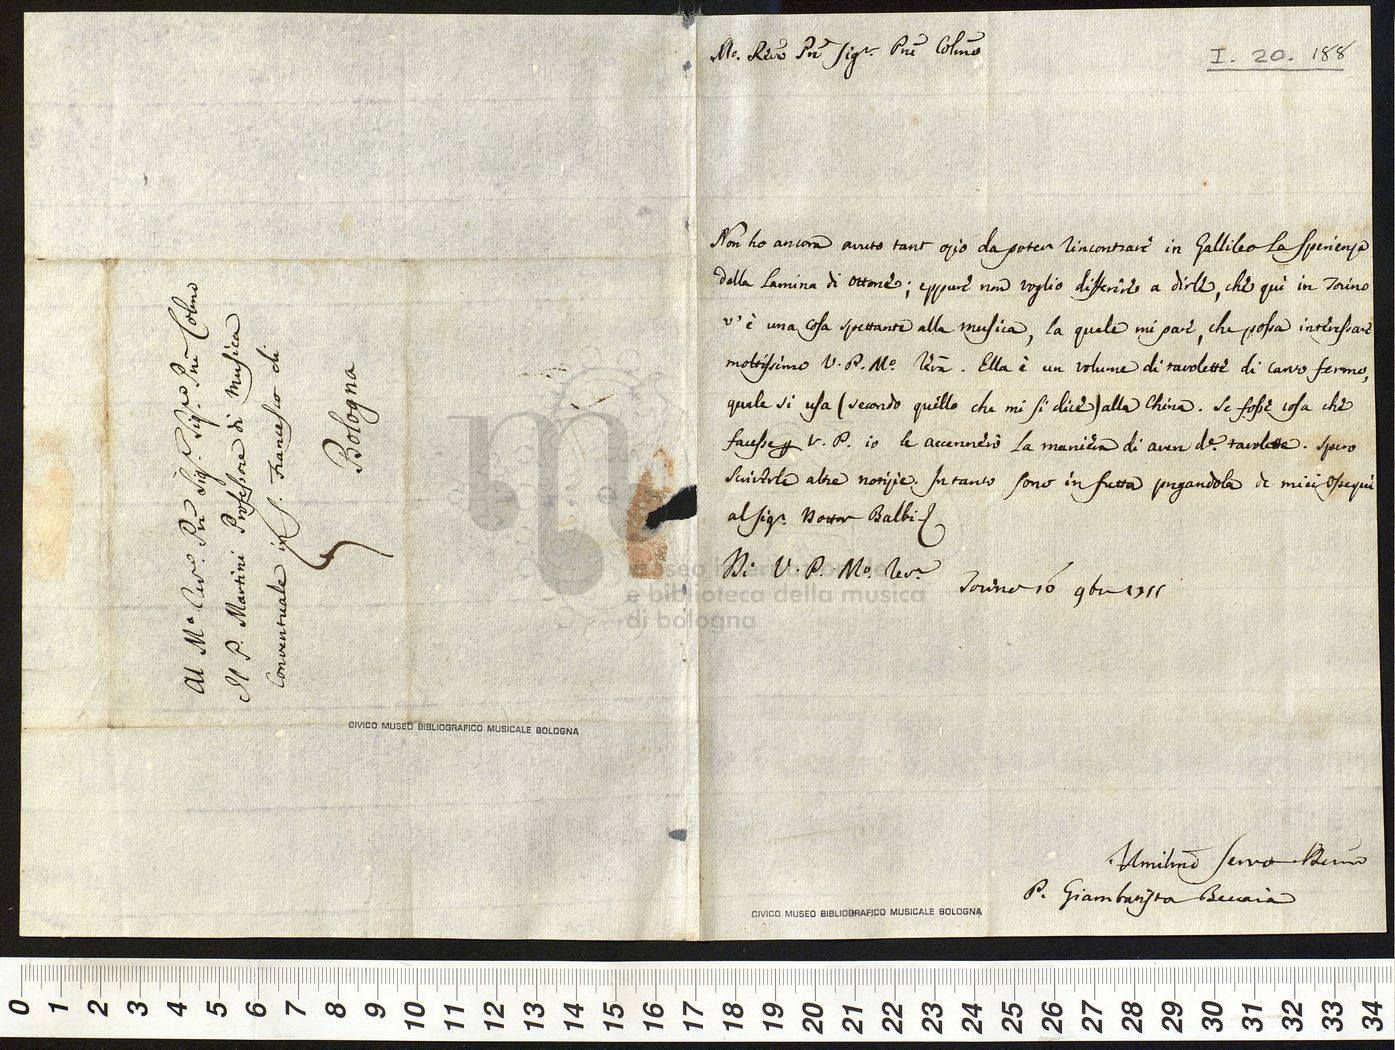 Al M.º Rev.do Pñ Sig.r Sig.r Pñe Colmo
Il P. Martini Professore di Musica
Conventuale in S. Francesco di
Bologna
CIVICO MUSEO BIBLIOGRAFICO MUSICALE BOLOGNA
Mo. Revo Pñ Sigr. Pñe Colmo
I. 20. 188
Non ho ancora avuto tant ozio da poter rincontrare in Gallileo la sperienza
della Lamina di Ottone; eppure non voglio differire a dirle, che qui in Torino
v'è una cosa spettante alla musica, la quale mi pare, che possa interessare
moltissimo V. P. Mo. Reva. Ella è un volume di tavolette di canto fermo,
quale si usa (secondo quello che mi si dice) alla China. Se fosse cosa che
facesse V. P. io le accennerò la maniera di aver de. tavolette. Spero
scriverle altre notizie. Intanto sono in fretta pregandola de miei ossequi
al Sigr. Dottor Balbi
Di V. P. Mo. Revª
Torino 16 9bre 1755
Umilmo Servo
P. Giambatista Beccaria
CIVICO MUSEO BIBLIOGRAFICO MUSICALE BOLOGNA
museo internazionale
e biblioteca della musica
di bologna
0 1 2 3 4 5 6 7 8 9 10 11 12 13 14 15 16 17 18 19 20 21 22 23 24 25 26 27 28 29 30 31 32 33 34